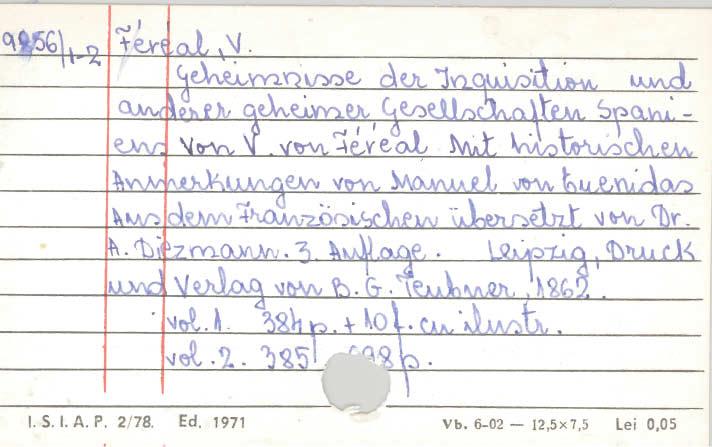 9856/1-2 Féréal, V.
Geheimnisse der Inquisition und
anderer geheimer Gesellschaften Spani-
ens von V. von Féréal Mit historischen
Anmerkungen von Manuel von Cuenidas
Aus dem Französischen übersetzt von Dr.
A. Diezmann. 3. Auflage. Leipzig, Druck
und Verlag von B. G. Teubner, 1862.
vol. 1. 384 p. + 10 f. cu ilustr.
vol. 2. 385 698 p.
I. S. I. A. P. 2/78. Ed. 1971 Vb. 6-02 — 12,5×7,5 Lei 0,05